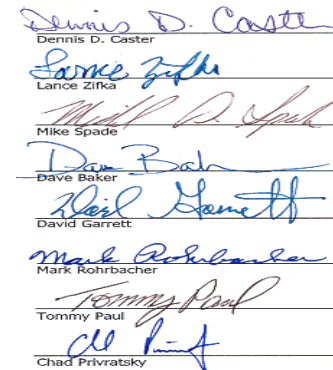 Dennis D. Caster
Dennis D. Caster
Lance Zifka
Lance Zifka
D. Spade
Mike Spade
Dave Baker
Dave Baker
David Garrett
David Garrett
Mark Rohrbacher
Mark Rohrbacher
Tommy Paul
Tommy Paul
Chad Privratsky